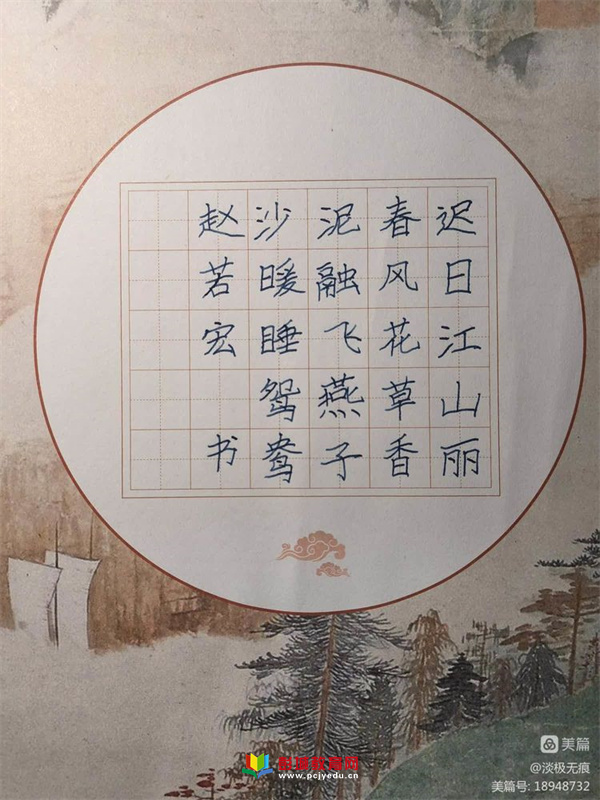 迟日江山丽
春风花草香
泥融飞燕子
沙暖睡鸳鸯
赵若宏 书
www.pcjyedu.cn
美篇
@淡极无痕
美篇号: 18948732